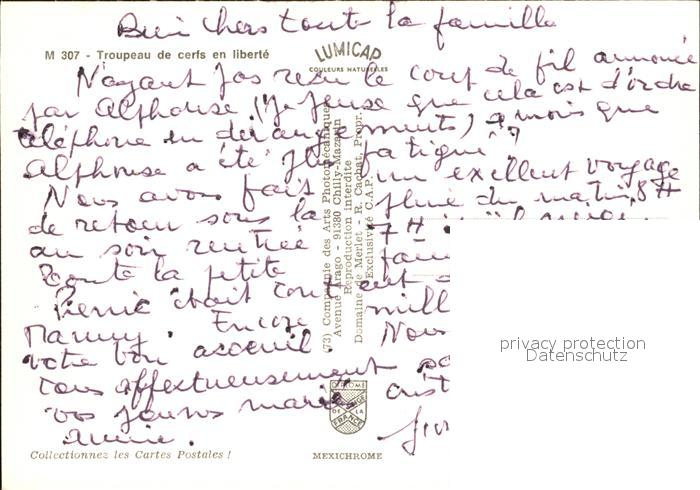 Bien chers toute la famille
M 307 - Troupeau de cerfs en liberté
LUMICAP
COULEURS NATURELLES
N'ayant pas reçu le coup de fil annoncé
par Alphonse (je pense que cela est d'ordre
téléphone en dérangements) à moins que
Alphonse a été plus fatigué ??
Nous avons fait un excellent voyage
de retour sous la pluie du matin 8H
au soir rentrée 7H
Toute la petite fam
Pierric était cont ent
Mammy. Encore mill
votre bon accueil. Nous
tous affectueusement
vos jeunes mariés
Annie.
(73) Compagnie des Arts Photomécaniques
Avenue Arago - 91380 Chilly-Mazarin
Reproduction interdite
Domaine de Merlet - R. Cachat, Propr.
Exclusivité C.A.P.
DIPLOME
DE LA
FRANCE
Collectionnez les Cartes Postales !
MEXICHROME
privacy protection
Datenschutz